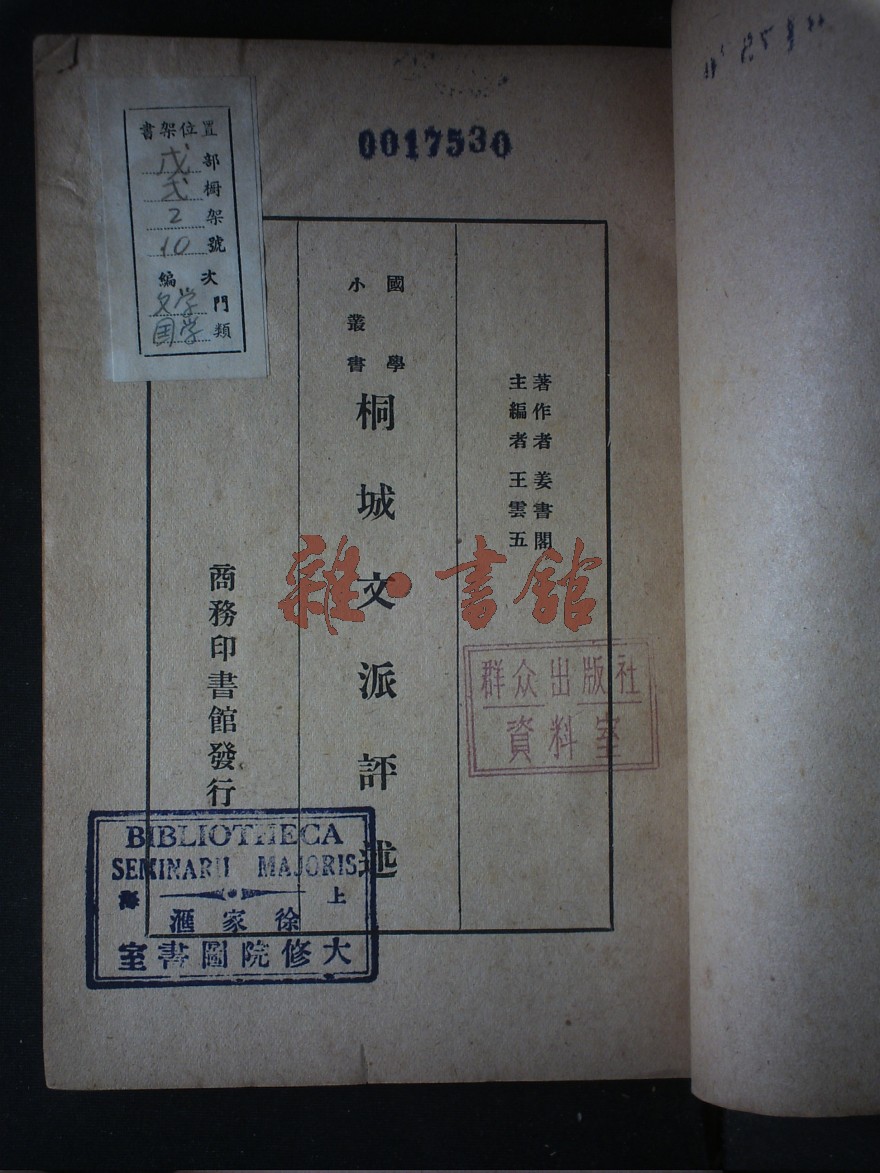 0017530
書架位置
戊部
弍橱
2架
10號
編次
文学門
国学類
著作者 姜書閣
主編者 王雲五
國學
小叢書
桐城文派評述
商務印書館發行
雜·書館
群众出版社
資料室
BIBLIOTHECA
SEMINARII MAJORIS
上海
徐家滙
大修院圖書室